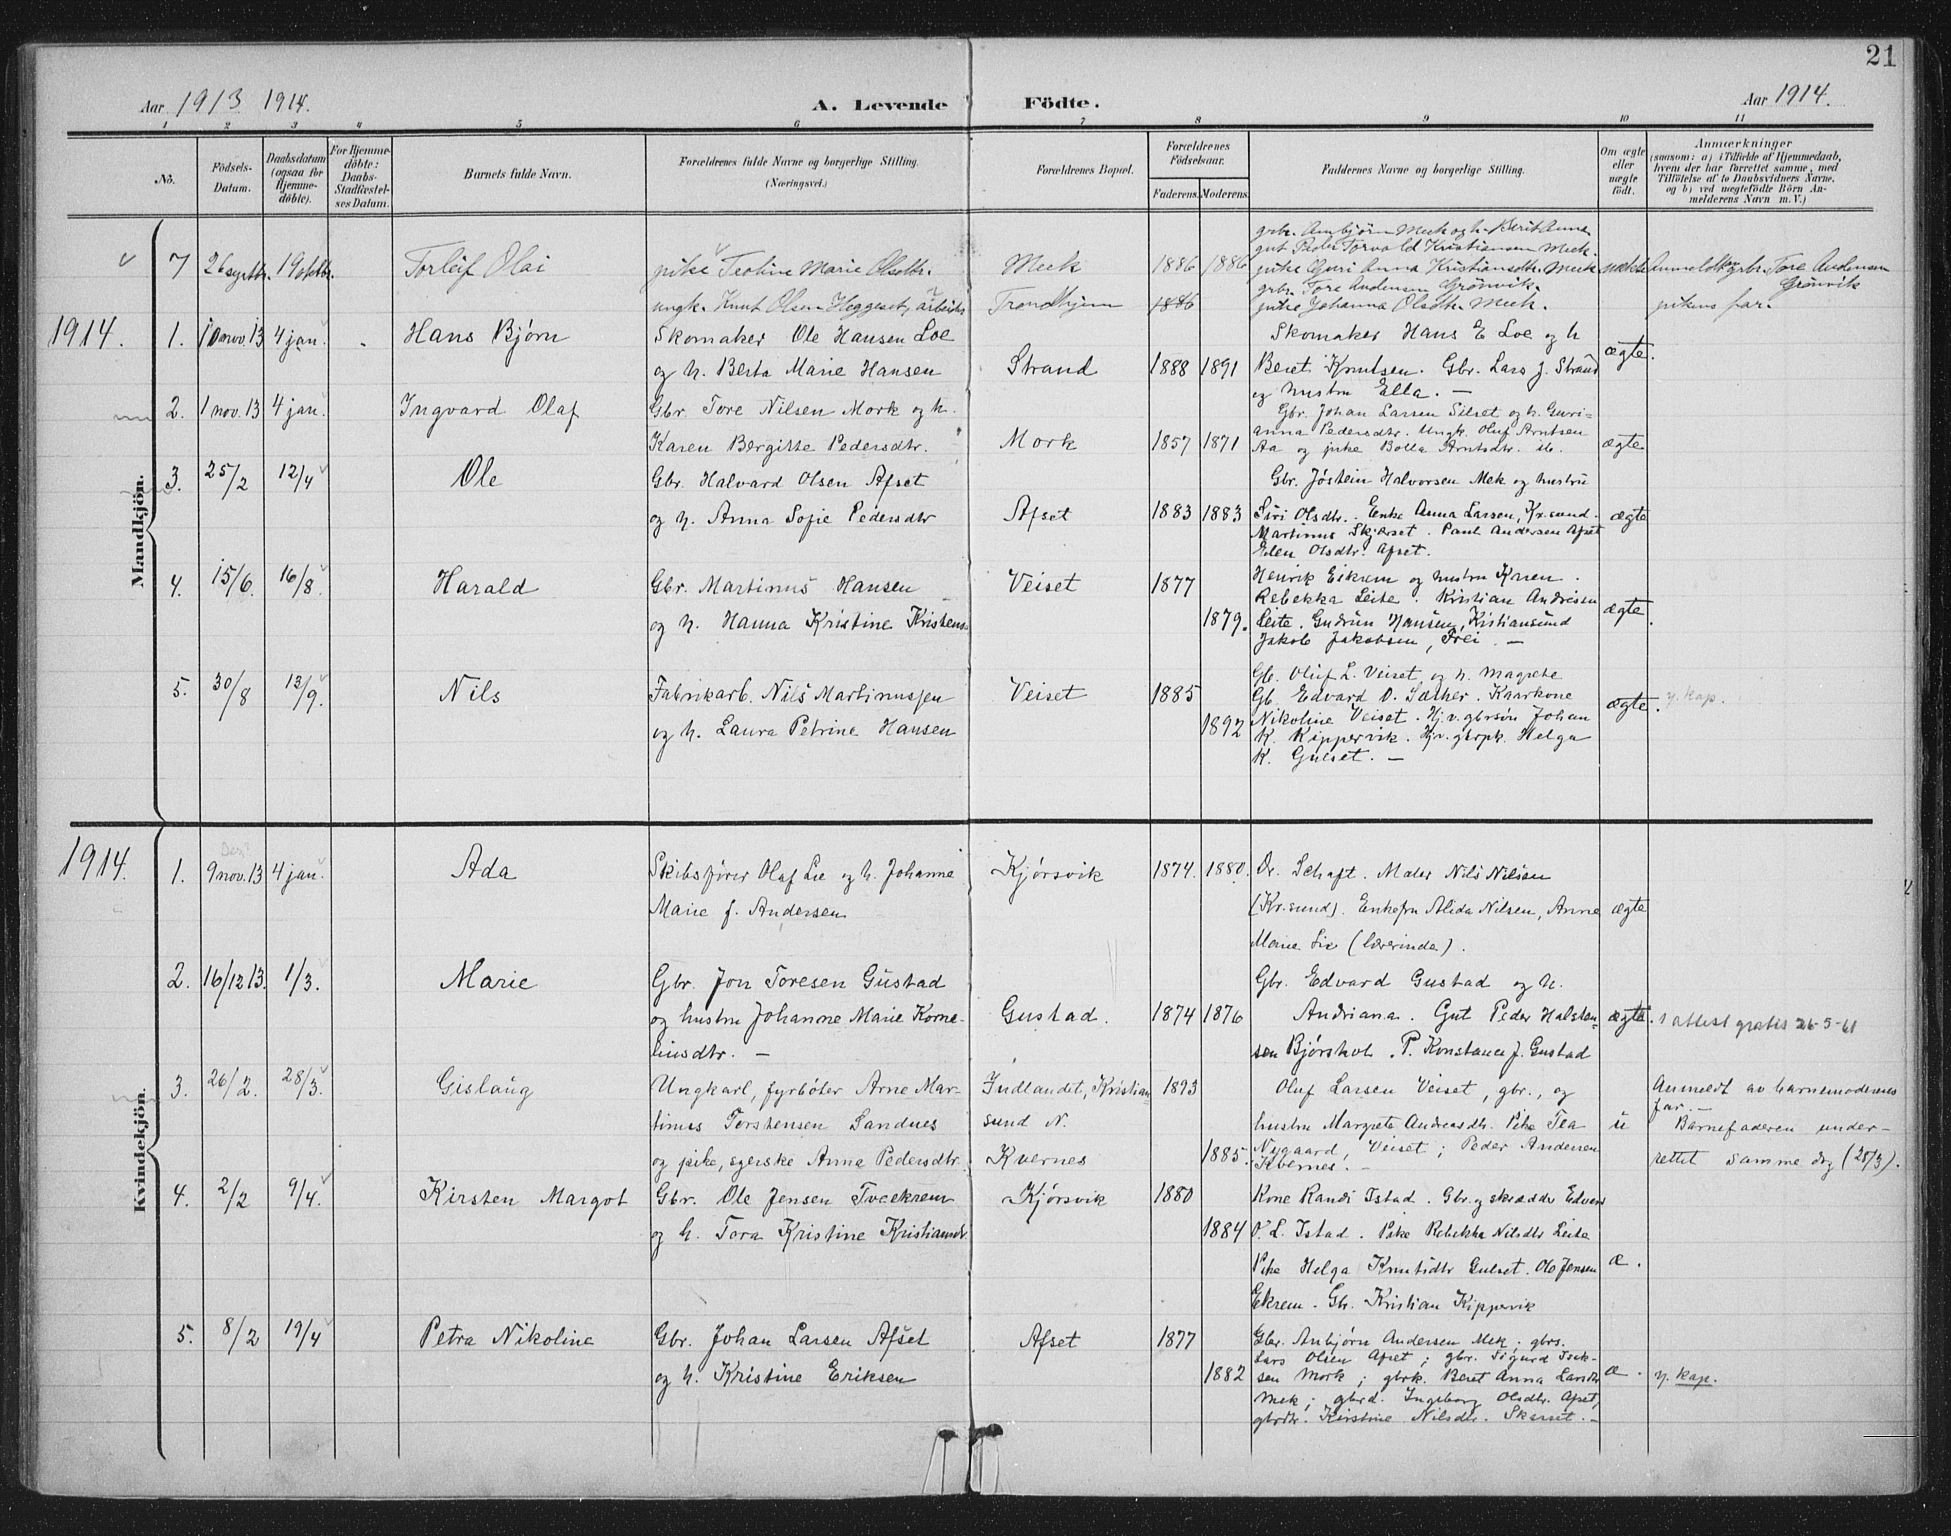 21
Aar 1913 1914. A. Levende Födte. Aar 1914.
1 2 3 4 5 6 7 8 9 10 11
No.
Födsels-Datum.
Daabsdatum (ogsaa for Hjemme-döbte).
For Hjemme-döbte: Daabs-Stadfæstel-ses Datum.
Barnets fulde Navn.
Forældrenes fulde Navne og borgerlige Stilling.
(Næringsvei.)
Forældrenes Bopæl.
Forældrenes Födselsaar.
Faderens. Moderens.
Faddernes Navne og borgerlige Stilling.
Om ægte eller uægte födt.
Anmærkninger
(saasom: a) i Tilfælde af Hjemmedaab, hvem der har forrettet samme, med Tilföielse af to Daabsvidners Navne, og b) ved uægtefödte Börn An-melderens Navn m. V.)
Mandkjön.
7 26 septbr. 19 oktbr. Torleif Olai
pike Teoline Marie Olsdtr.
ungk. Knut Olsen Heggeset, arbeider
Meek 1886 1886
Trondhjem 1886
grbr. Arnbjörn Meek og h. Berit Anna
gut Peder Torvald Kristiansen Meek.
pike Guri Anna Kristiansdtr. Meek
grbr. Tore Andersen Grönvik.
pike Johanna Olsdtr. Meek.
uækte
Anmeldt av grbr. Tore Andersen
Grönvik
pikens far.
1914. 1. 10 nov. 13 4 jan. Hans Bjørn
Skomaker Ole Hansen Loe
og h. Berta Marie Hansen
Strand 1888 1891
Skomaker Hans E Loe og h
Beret Knutsen. Gbr. Lars J. Strand
og hustru Ella. —
ægte.
2. 1 nov. 13 4 jan. Ingvard Olaf
Gbr. Tore Nilsen Mork og h.
Karen Bergitte Pedersdtr.
Mork 1857 1871
Gbr. Johan Larsen Silset og h. Guri-
anna Pedersdtr. Ungk. Oluf Arntsen
Aa og pike Bolla Arntsdtr. ib.
ægte
3. 25/2 12/4 Ole
Gbr. Halvard Olsen Afset
og h. Anna Sofie Pedersdtr
Afset 1883 1883
Gbr. Jøstein Halvorsen Mek og hustru
Siri Olsdtr. Enke Anna Larsen, Kr.sund.
Martinus Skjerset. Paul Andersen Afset
Elen Olsdtr. Afset.
ægte
4. 15/6. 16/8. Harald
Gbr. Martinus Hansen
og h. Hanna Kristine Kristens.
Veiset 1877
1879.
Henrik Eikrem og hustru Karen.
Rebekka Leite. Kristian Andresen
Leite. Gudrun Hansen, Kristiansund
Jakob Jakobsen, Frei. —
ægte.
5. 30/8 13/9. Nils
Fabrikarb. Nils Martinussen
og h. Laura Petrine Hansen
Veiset 1885
1892
Gb. Oluf L. Veiset og h. Magrete
Gb. Edvard O. Sæther. Kaarkone
Nikoline Veiset. Hj.v. gbrsøn Johan
K. Kippervik. Hjv. gbrpk. Helga
K. Gulset. —
ægte.
y. kap.
Kvindekjön.
1914. 1. Des? 9 nov. 13 4 jan. Ada
Skibsfører Olaf Lie og h. Johanne
Marie f. Andersen
Kjørsvik 1874. 1880.
Dr. Schaft. Maler Nils Nilsen
(Kr.sund). Enkefru Alida Nilsen, Anne
Marie Lie (lærerinde).
ægte
2. 16/12 13. 1/3. Marie
Gbr. Jon Toresen Gustad
og hustru Johanne Marie Korne-
liusdtr. —
Gustad. 1874 1876
Gbr. Edvard Gustad og h.
Andriana. Gut Peder Halsten-
sen Bjørshol. P. Konstance J. Gustad
ægte.
1 attest gratis 26-5-61
3. 26/2. 28/3. Gislaug
Ungkarl, fyrbøter Arne Mar-
tinus Torstensen Sandnes
og pike, syerske Anna Pedersdtr.
Indlandet, Kristian-
sund N.
Kvernes
1893
1885.
Oluf Larsen Veiset, gbr., og
hustru Margrete Andreasdtr. Pike Tea
Nygaard, Veiset; Peder Andersen
Kvernes. —
u
Anmeldt av barnemoderens
far. —
Barnefaderen under-
rettet samme dag (28/3).
4. 2/2 9/4. Kirsten Margot
Gbr. Ole Jensen Tveekrem
og h. Tora Kristine Kristiansdtr
Kjørsvik 1880
1884
Kone Randi Istad. Gbr. og skrædder Edvard
O. L. Istad. Pike Rebekka Nilsdtr Leite
Pike Helga Knutsdtr Gulset. Ole Jensen
Ekrem. Gb. Kristian Kippervik
æ.
5. 8/2 19/4 Petra Nikoline
Gbr. Johan Larsen Afset
og h. Kristine Eriksen
Afset 1877
1882
Gbr. Anbjørn Andersen Mek; gbrs.
Lars Olsen Afset; gbr. Sigurd Isak-
sen Mork; gbrk. Beret Anna Larsdtr
Mek; gbrd. Ingeborg Olsdtr. Afset,
gbrdtr. Kirstine Nilsdtr. Skarset. —
æ.
y. kap.